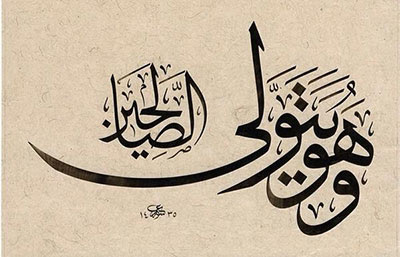 وَهُوَ يَتَوَلَّى الصَّالِحِينَ
١٤٣٥